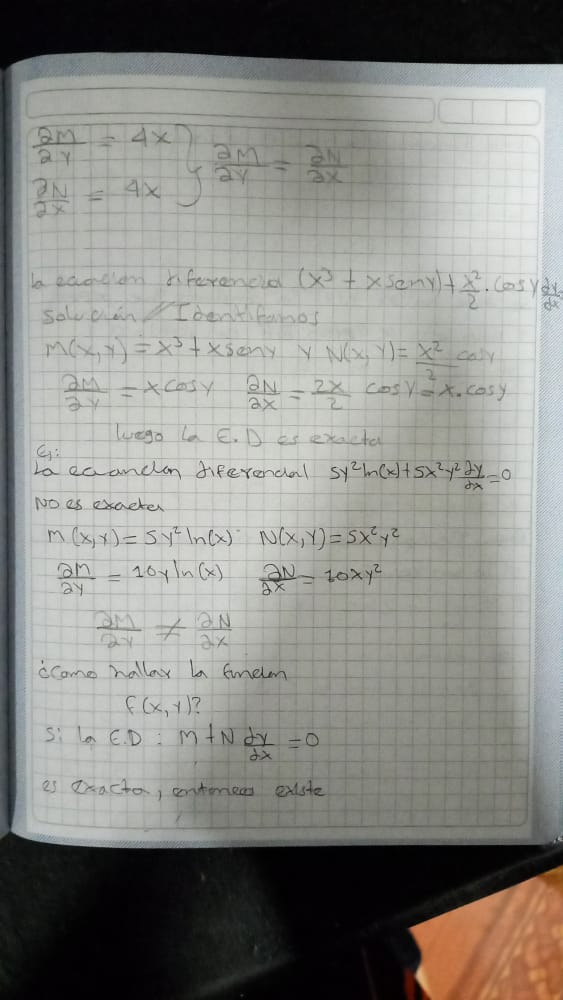 ∂M/∂y = 4x } ∂M/∂y = ∂N/∂x
∂N/∂x = 4x
la ecuación diferencial (x³ + x seny) + x²/2 · cosy dy/dx
solución // Identifamos
M(x,y) = x³ + x seny y N(x,y) = x²/2 cosy
∂M/∂y = x cosy ∂N/∂x = 2x/2 cosy = x.cosy
luego la E.D es exacta
Ej:
La ecuandion diferencial 5y² ln(x) + 5x²y² dy/dx = 0
NO es exacta
M(x,y) = 5y² ln(x) N(x,y) = 5x²y²
∂M/∂y = 10y ln(x) ∂N/∂x = 10xy²
∂M/∂y ≠ ∂N/∂x
¿Como hallar la función
f(x,y)?
Si la E.D : M + N dy/dx = 0
es exacta, entonces existe